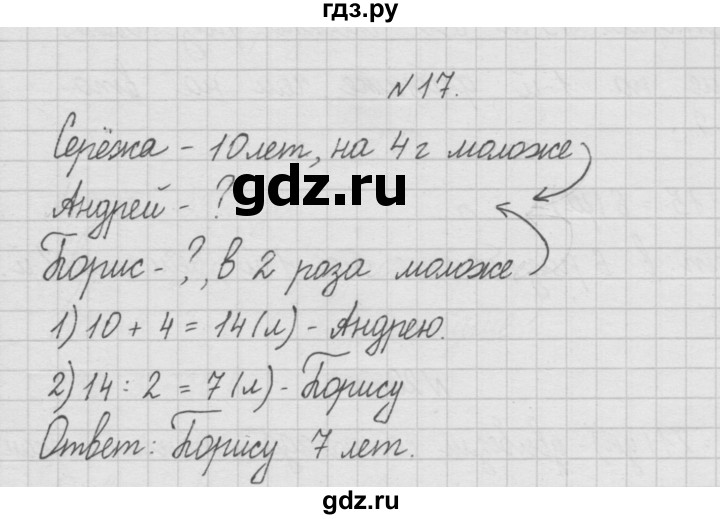 гдз.ру
№ 17.
Серёжа - 10 лет, на 4 г моложе
Андрей - ?
gdz.ru
Борис - ?, в 2 раза моложе
1) 10 + 4 = 14 (л) - Андрею.
2) 14 : 2 = 7 (л) - Борису
Ответ: Борису 7 лет.
gdz.ru